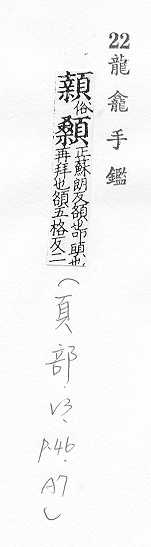 22 龍龕手鑑
俗
顙 正蘇朗反額叩頭也
再拜也額五格反二
(頁部.V3.p.46.A7)